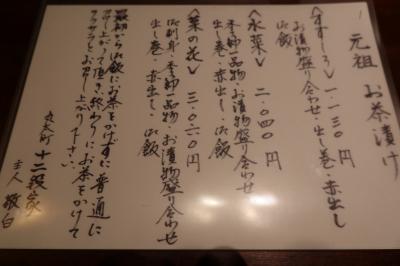 元祖 お茶漬け
〈すずしろ〉一.一三〇円
お漬物盛り合わせ・出し巻・赤出し
御飯
〈水菜〉二.〇四〇円
季節一品物・お漬物盛り合わせ
出し巻・赤出し・御飯
〈菜の花〉三.〇六〇円
御刺身・季節一品物・お漬物盛り合わせ
出し巻・赤出し・御飯
最初から御飯にお茶をかけずに普通に
召し上がって頂き、終わりにお茶をかけて
サラサラとお召し上がり下さい
丸太町 十二段家
主人 敬白